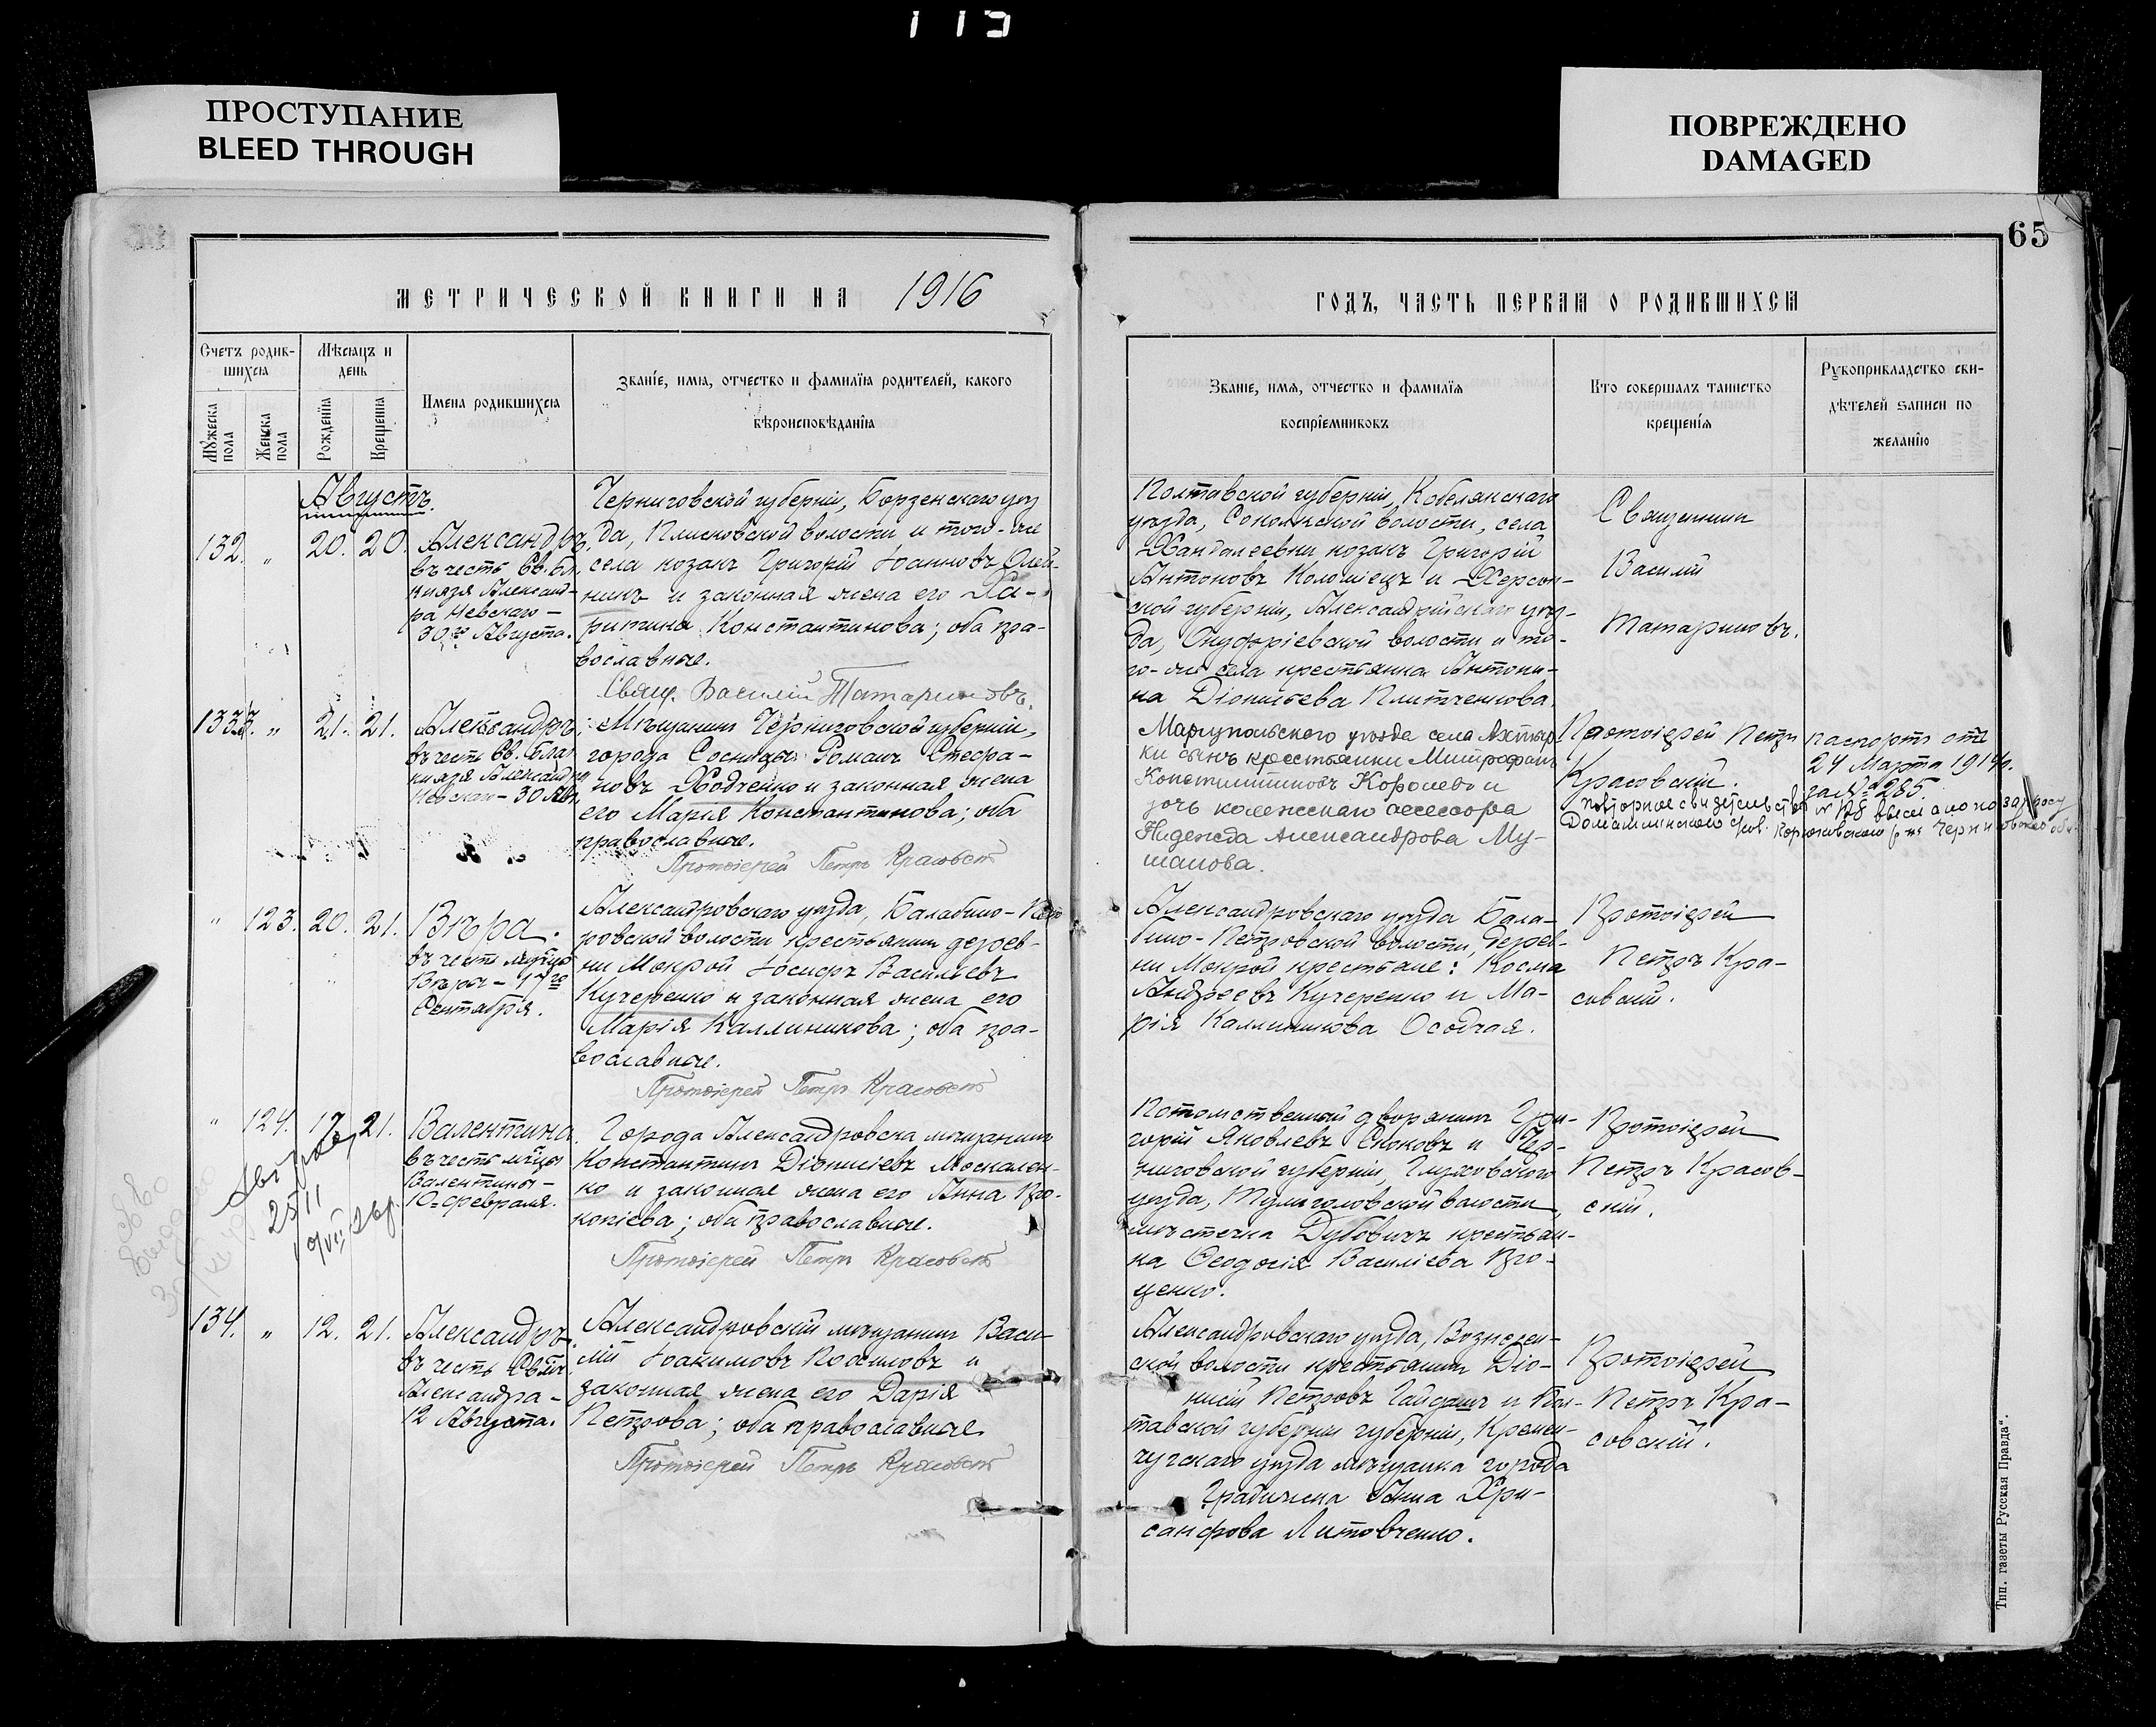 113
ПРОСТУПАНИЕ
BLEED THROUGH
ПОВРЕЖДЕНО
DAMAGED
65
МЕТРИЧЕСКОЙ КНИГИ НА 1916
ГОДЪ, ЧАСТЬ ПЕРВАЯ О РОДИВШИХСЯ
Счетъ родив-
шихся
Мужеска пола
Женска пола
Мѣсяцъ и
день
Рожденія
Крещенія
Имена родившихся
Званіе, имя, отчество и фамилія родителей, какого
вѣроисповѣданія
Званіе, имя, отчество и фамилія
воспріемниковъ
Кто совершалъ таинство
крещенія
Рукоприкладство сви-
дѣтелей записи по
желанію
Августъ.
132. " 20. 20.
Александръ,
въ честь Св. Бл.
князя Александ-
ра Невскаго –
30го Августа.
Черниговской губерніи, Борзенскаго уѣз
да, Плисковской волости и того-же
села козакъ Григорій Іоанновъ Олей-
никъ и законная жена его Ха-
ритина Константинова; оба пра-
вославные.
Свящ. Василій Татариновъ.
Полтавской губерніи, Кобелякскаго
уѣзда, Соколянской волости, села
Хандалеевки козакъ Григорій
Антоновъ Коломіецъ и Херсон-
ской губерніи, Александрійскаго уѣз-
да, Онуфріевской волости и то-
го-же села крестьянка Антони-
на Діонисьева Плитченкова.
Священникъ
Василій
Татариновъ.
133. " 21. 21.
Александръ,
въ честь Св. Благ.
князя Александра
Невскаго – 30 Авг.
Мѣщанинъ Черниговской губерніи,
города Сосницы Романъ Стефа-
новъ Ходченко и законная жена
его Марія Константинова; оба
православные.
Протоіерей Петръ Красовскій
Маріупольскаго уѣзда села Ахтыр
ки сынъ крестьянки Митрофанъ
Константиновъ Королевъ и
дочь коллежскаго ассесора
Надежда Александрова Му-
шанова.
Протоіерей Петръ
Красовскій.
паспортъ отъ
24 Марта 1914г.
за № 285.
Повторное свидетельство № выслано по запросу
" 123. 20. 21.
Вѣра.
въ честь муч-цы
Вѣры – 17го
Сентября.
Александровскаго уѣзда, Балабино-Пет
ровской волости крестьянинъ дерев-
ни Мокрой Іосифъ Васильевъ
Кучеренко и законная жена его
Марія Каллиникова; оба пра-
вославные.
Протоіерей Петръ Красовскій
Александровскаго уѣзда Бала-
бино-Петровской волости, дерев-
ни Мокрой крестьяне: Косма
Андреевъ Кучеренко и Ма-
рія Каллиникова Осодчая.
Протоіерей
Петръ Кра-
совскій.
" 124. 17. 21.
Валентина,
въ честь м-цы
Валентины –
10 Февраля.
25/II
Города Александровска мѣщанинъ
Константинъ Діонисіевъ Москален-
ко и законная жена его Анна Про-
копіева; оба православные.
Протоіерей Петръ Красовскій
Потомственный дворянинъ Гри-
горій Яковлевъ Скоковъ и Чер-
ниговской губерніи, Глуховскаго
уѣзда, Тулиголовской волости
мѣстечка Дубовичъ крестьян-
ка Ѳеодосія Василіева Про-
ценко.
Протоіерей
Петръ Красов-
скій.
134. " 12. 21.
Александръ,
въ честь Св. Муч.
Александра –
12 Августа.
Александровскій мѣщанинъ Васи-
лій Іоакимовъ Посиловъ и
законная жена его Дарія
Петрова; оба православные
Протоіерей Петръ Красовскій
Александровскаго уѣзда, Вознесен-
ской волости крестьянинъ Діо-
нисій Петровъ Гайдашъ и Пол-
тавской губерніи губерніи, Кремен-
чугскаго уѣзда мѣщанка города
Градижска Анна Хри-
санфова Литовченко.
Протоіерей
Петръ Кра-
совскій.
Тип. газеты Русская Правда".